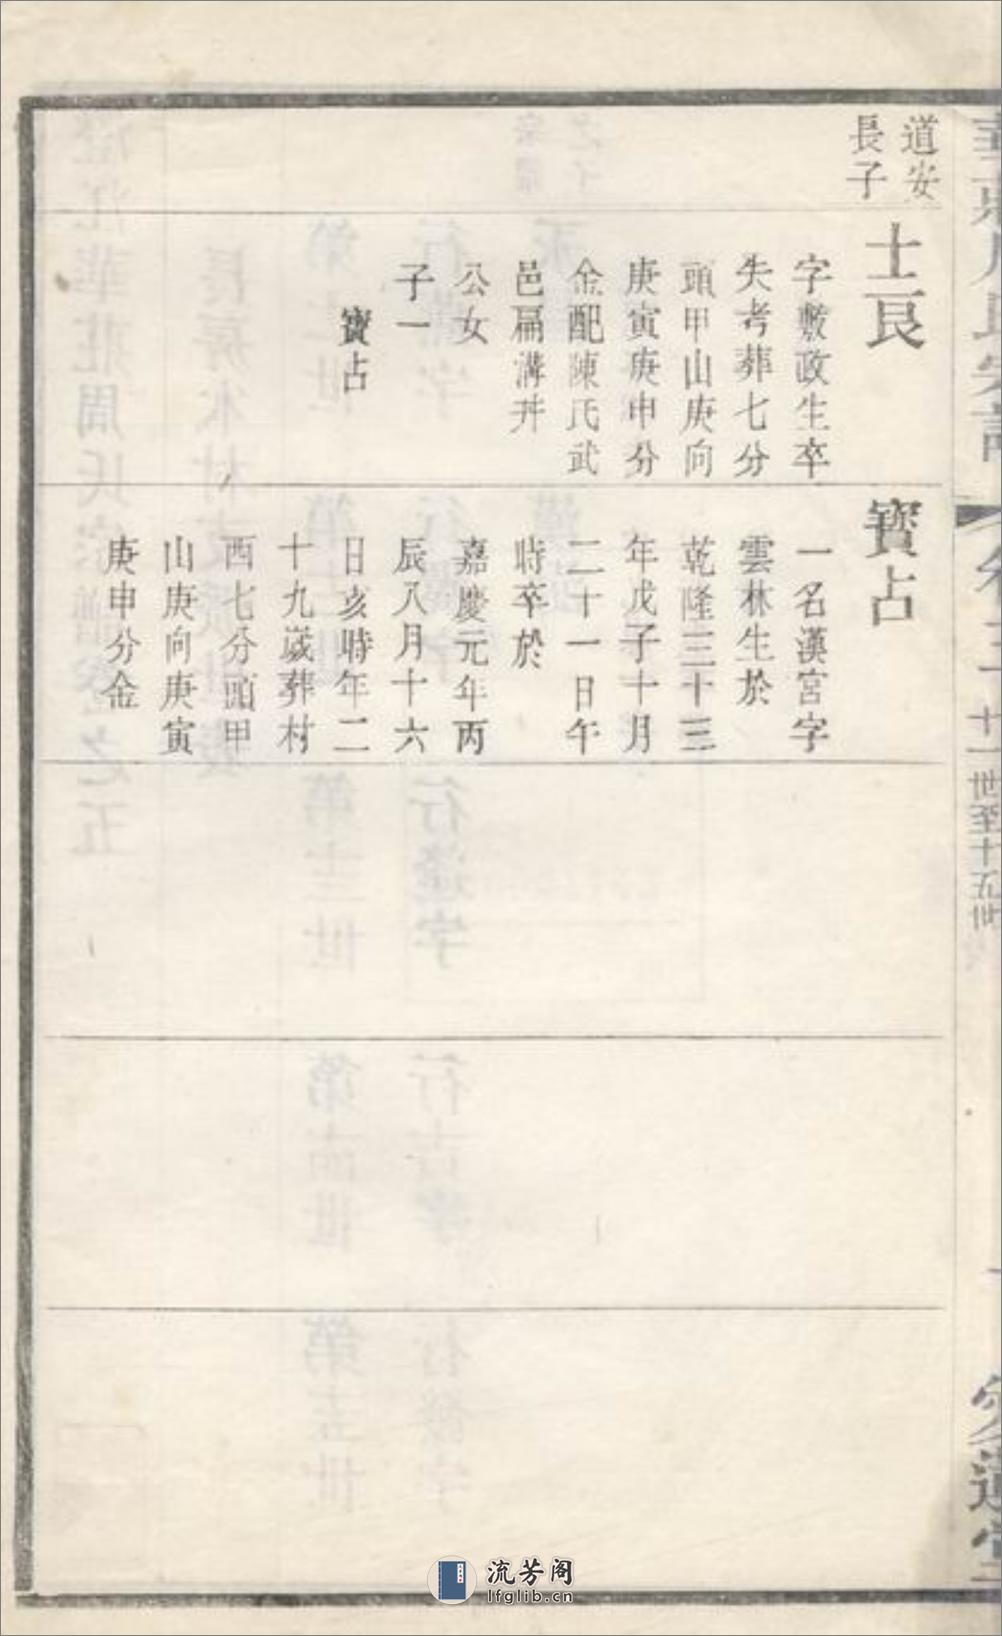 道安
長子
士良
字敷政生卒
失考葬七分
頭甲山庚向
庚寅庚申分
金配陳氏武
邑扁溝井
公女
子一
寶占
寶占
一名漢宮字
雲林生於
乾隆三十三
年戊子十月
二十一日午
時卒於
嘉慶元年丙
辰八月十六
日亥時年二
十九歲葬村
西七分頭甲
山庚向庚寅
庚申分金
華莊周氏宗譜
卷五
十一世至十五世
愛蓮堂
流芳阁
lfglib.cn